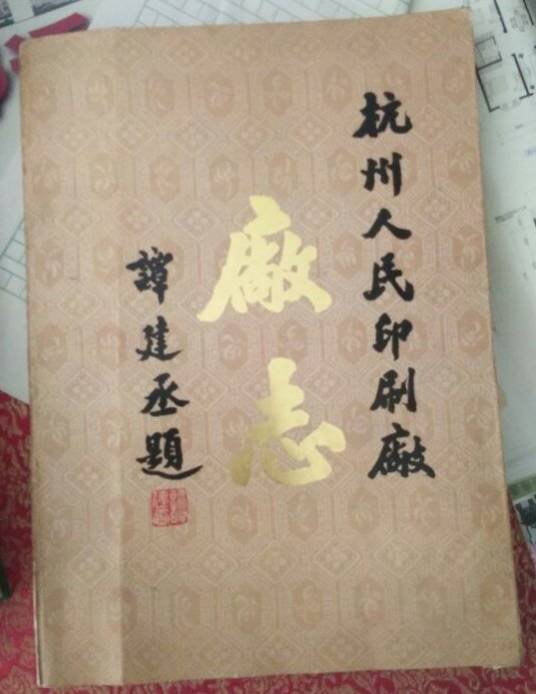 杭州人民印刷廠
廠志
譚建丞題